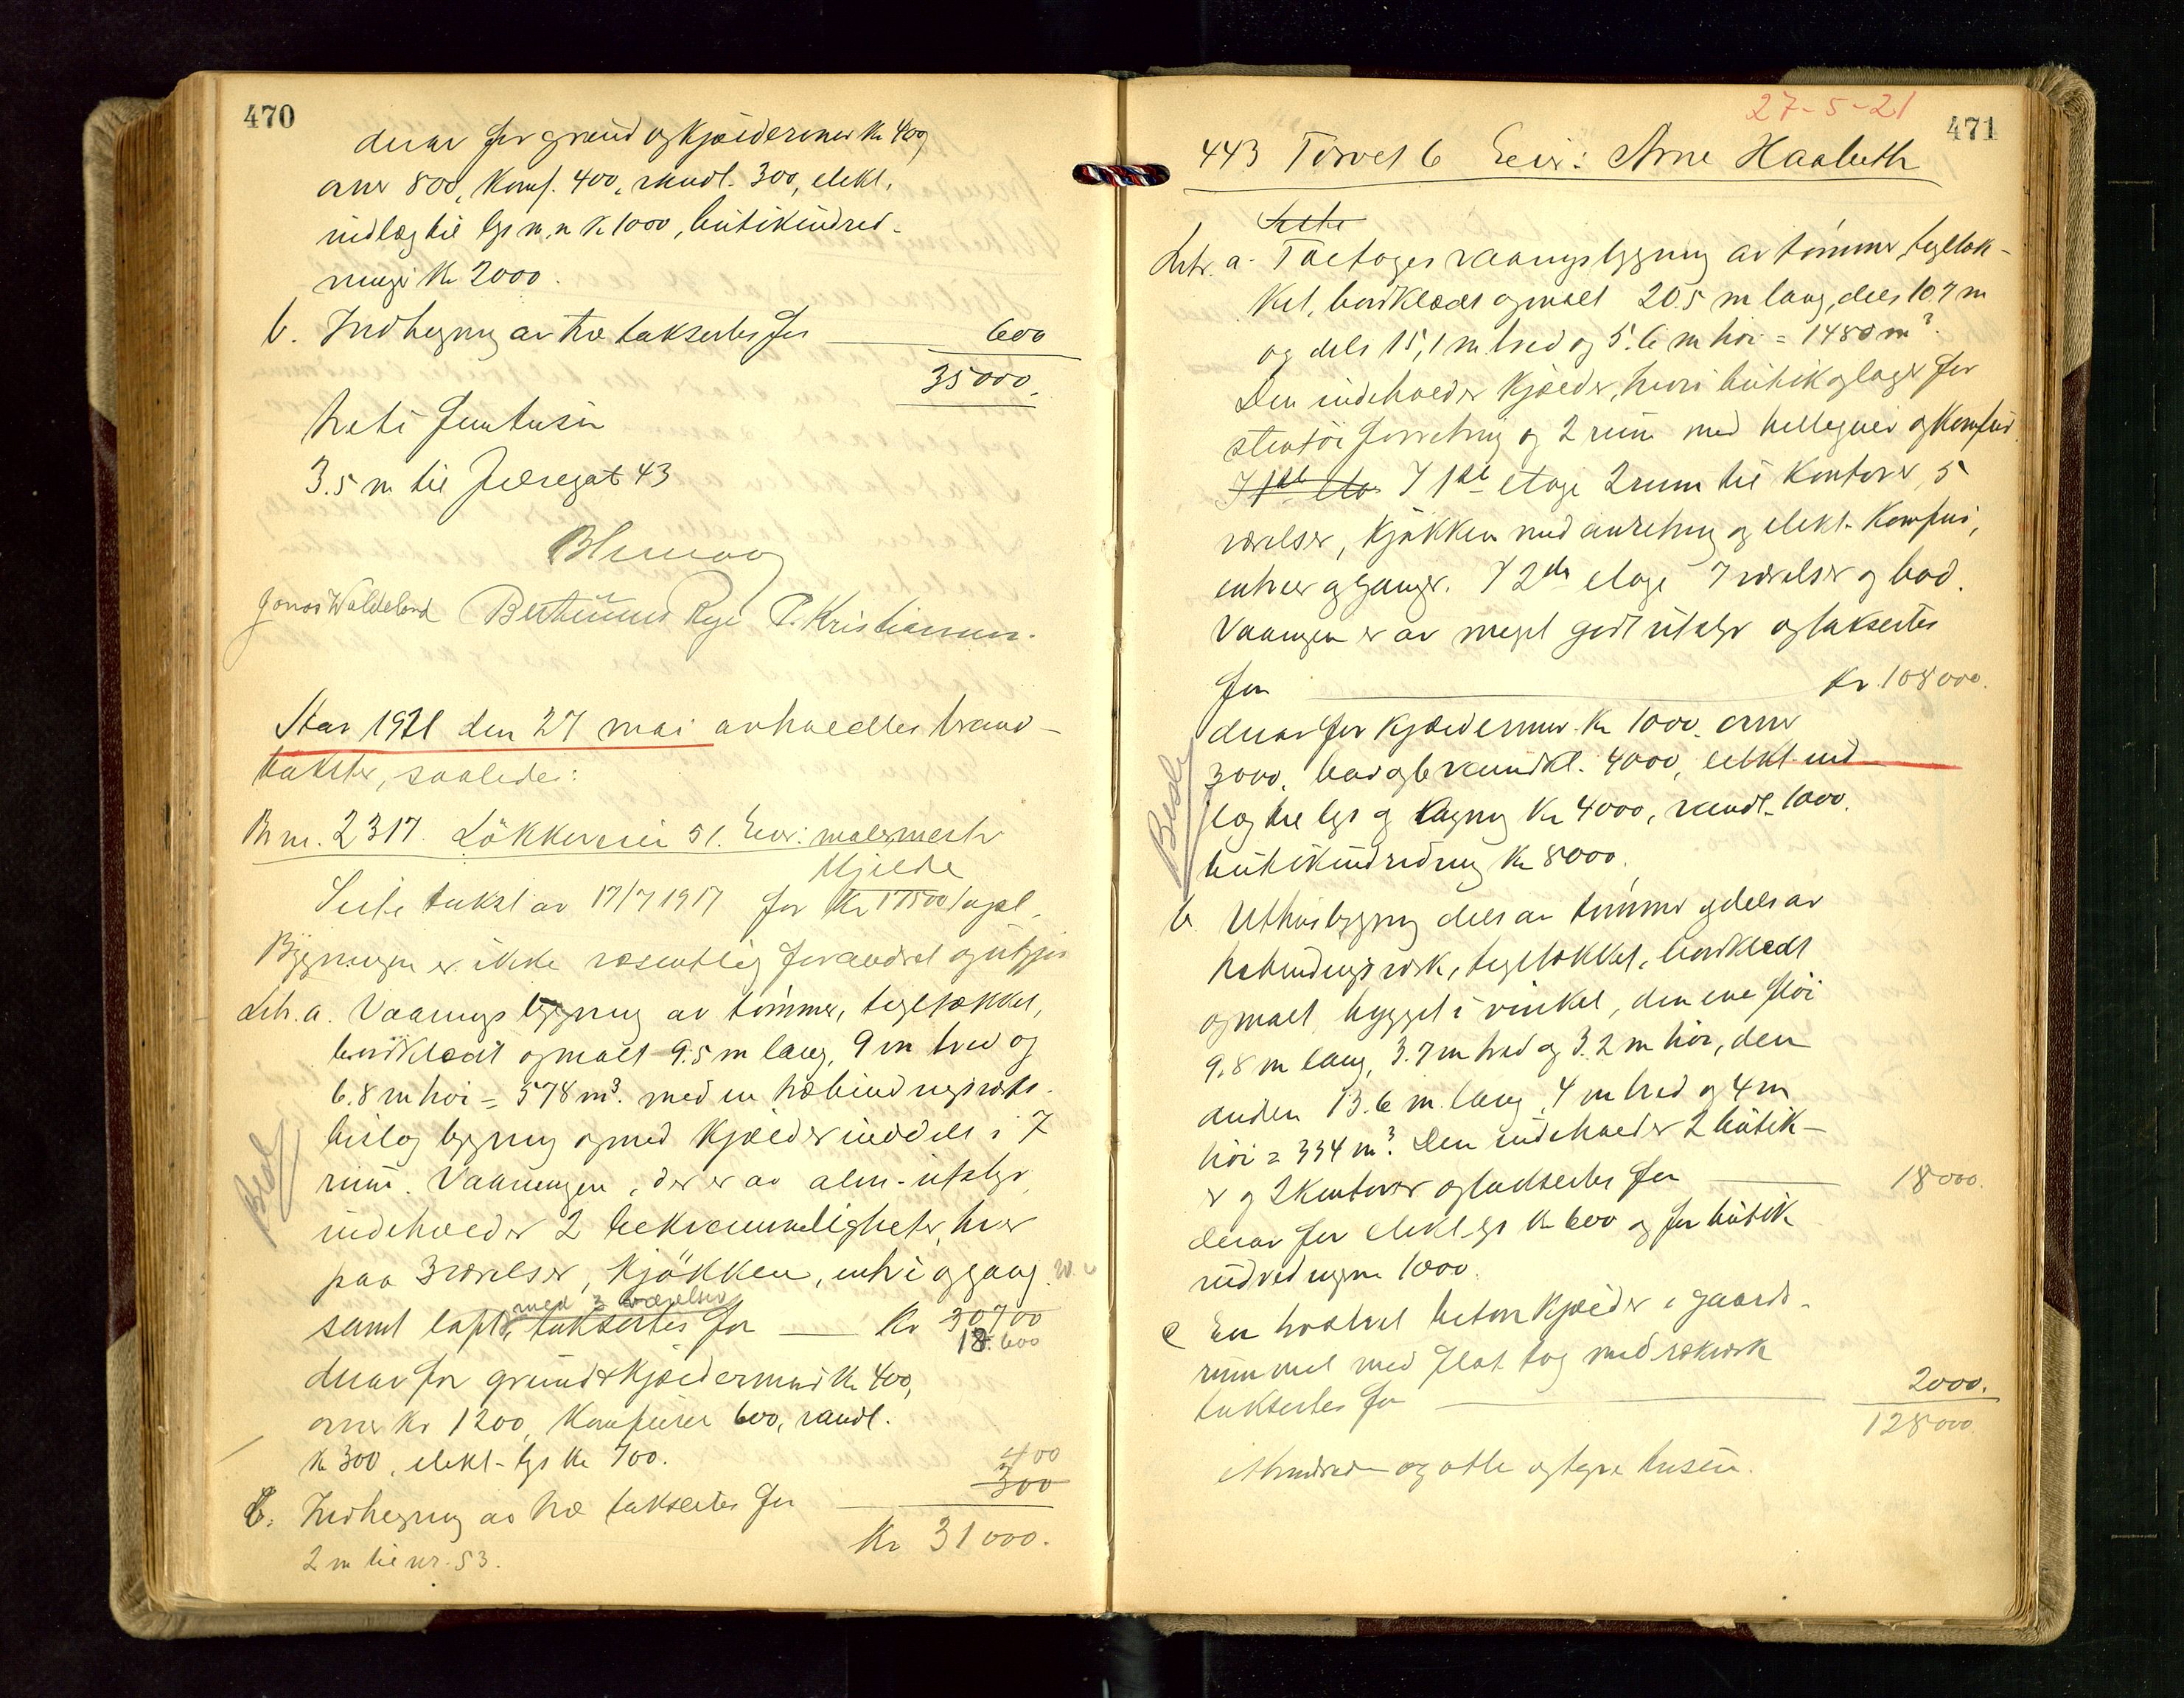 470
derav for grund og kjældermur Kr 400
ovner 800, Komf. 400, vandl. 300, elekt.
indlæg til lys m. m Kr 1000, butikindred-
ninger Kr 2000.
b. Indhegning av træ taksertes for 600
35000.
treti femtusen
3.5 m til Jelsegat 43
Jonas Waldeland Bertinius Rege P. Kristiansen.
Aar 1921 den 27 mai avholdtes brand-
takster, saaledes:
Br nr. 2317. Lökkeveien 51. Eier: malermestr
Mjelde
Siste takst av 17/7 1917 for Kr 17500
Bygningen er ikke væsentlig forandret og utgjør
Litr. a. Vaaningsbygning av tømmer, teglækket,
bordklædt og malt 9.5 m lang, 9 m bred og
6.8 m høi = 578 m³. med en træbindingsverks-
bislag bygning og med kjælder inddelt i 7
rum. Vaaningen, der er av alm. utstyr
indeholder 2 bekvemmeligheter, hver
paa 3 værelser, kjøkken, entre og gang
samt loft, med 3 værelser taksertes for Kr 30700
18.600
derav for grund & kjældermur Kr 400,
ovner Kr 1200, Komfurer 600, vandl.
Kr 300, elekt. lys Kr 700.
400
b. Indhegning av træ taksertes for 300
Kr 31000.
2 m til nr. 53.
Besl
27-5-21
471
443 Torvet 6 Eier: Arne Haabeth
Litr. a. Toetages vaaningsbygning av tømmer, teglæk-
ket, bordklædt og malt 20.5 m lang, dels 10.7 m
og dels 15,1 m bred og 5.6 m høi = 1480 m³.
Den indeholder kjælder, hvori butik og lager for
stentøi forretning og 2 rum med hellegulv og komfur.
I 1ste eta I 1ste etage 2 rum til Kontorer, 5
værelser, kjøkken med anretning og elekt. Komfur,
entreer og ganger. I 2den etage 7 værelser og bad.
Vaaningen er av meget godt utstyr og taksertes
for Kr. 108000.
derav for kjældermur Kr 1000. ovner
3000, bad og 6 vandkl. 4000, elekt. ind-
læg til lys og kogning Kr 4000, vandl. 1000.
butikindredning Kr 8000.
Besl
b. Uthusbygning dels av tømmer og dels av
trebindingsverk, teglækket, bordklædt
og malt, bygget i vinkel, den ene fløi
9.8 m lang, 3.7 m bred og 3.2 m høi, den
anden 13.6 m lang, 4 m bred og 4 m
høi = 334 m³. Den indeholder 2 butik-
er og 2 Kontorer og taksertes for 18000.
derav for elekt. lys Kr 600 og for butik
indredningen 1000.
c En hvælvet beton kjælder i gaards-
rummet med flat tag med rækverk
taksertes for 2000.
128000
ethundrede og otte og tyve tusen.